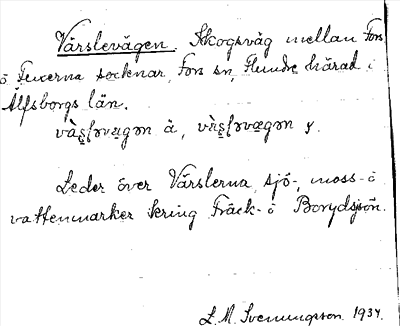 Värslevägen. Skogsväg mellan Fors
o Tunerna socknar, Fors sn, Flundre härad i
Älfsborgs län.
ä, y.
Leder över Värslerna, sjö-, moss- o
vattenmarker kring Fräck- o Borydsjön.
L. M. Svenungsson 1934.